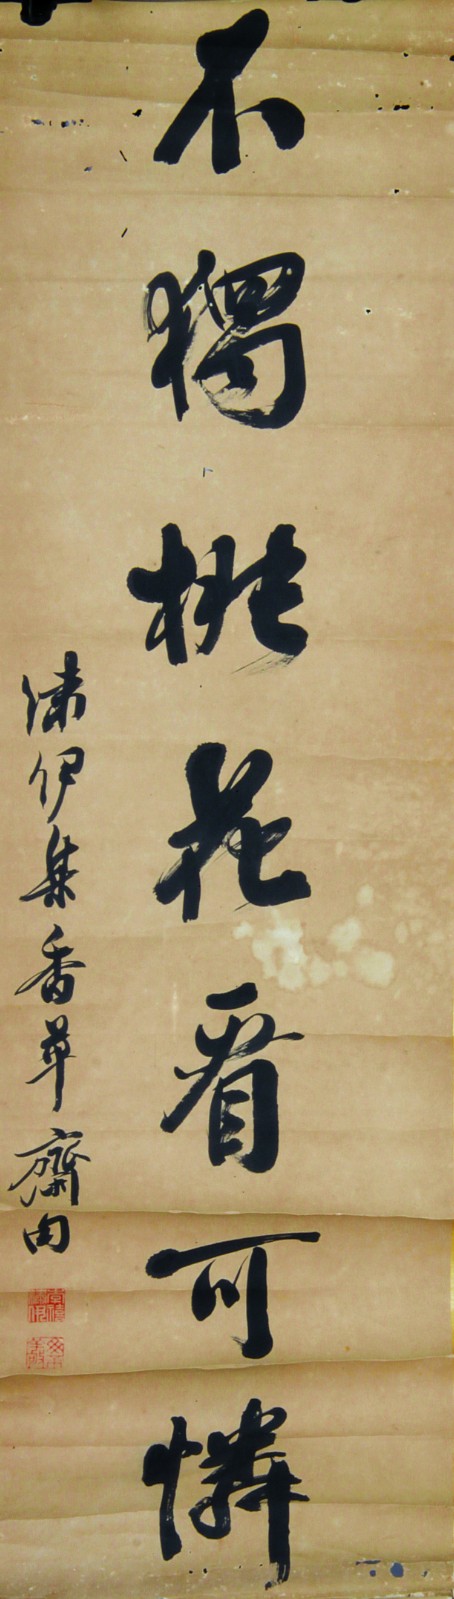 不獨桃花看可憐
伊集香草齋